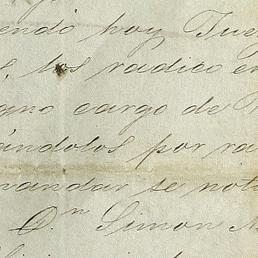 endo hoy Jue
los radico en
cargo de
ándolos por ra
mandar se not
Dn Simon M